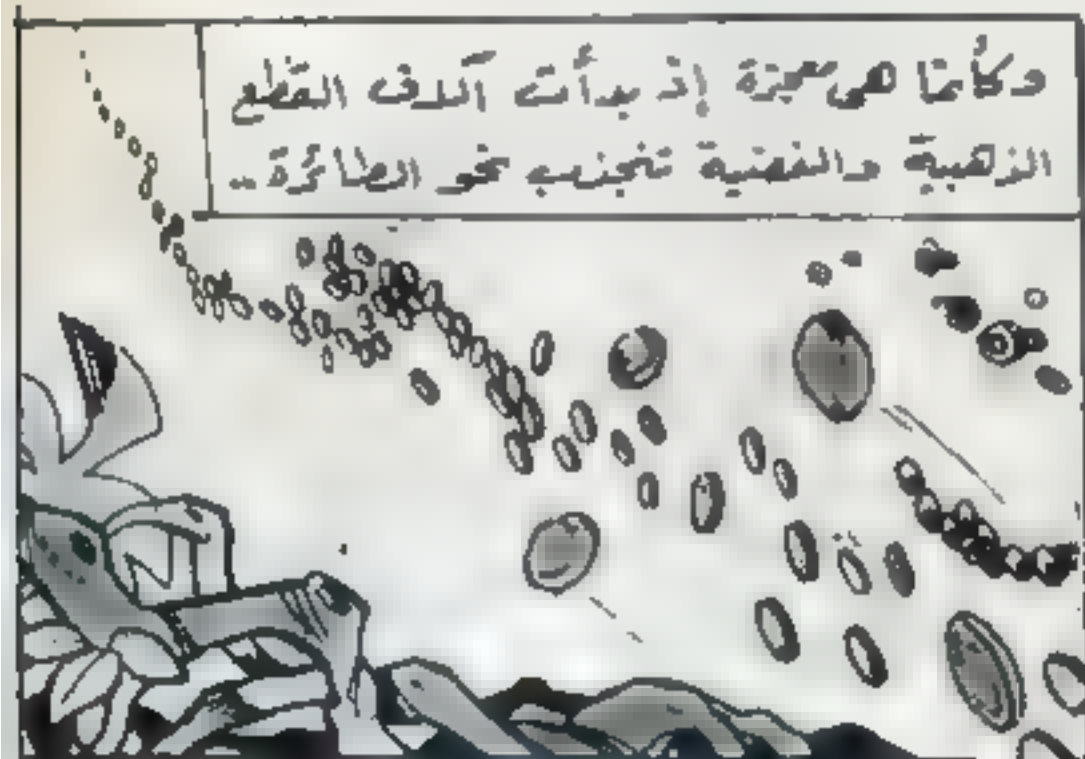 وكأنما هي معجزة إذ بدأت آلاف القطع
الذهبية والفضية تنجذب نحو الطائرة..